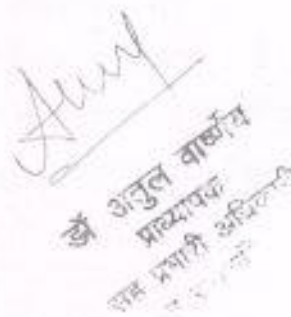 डॉ अतुल वार्ष्णेय
प्राध्यापक
सह प्रभारी अधिकारी